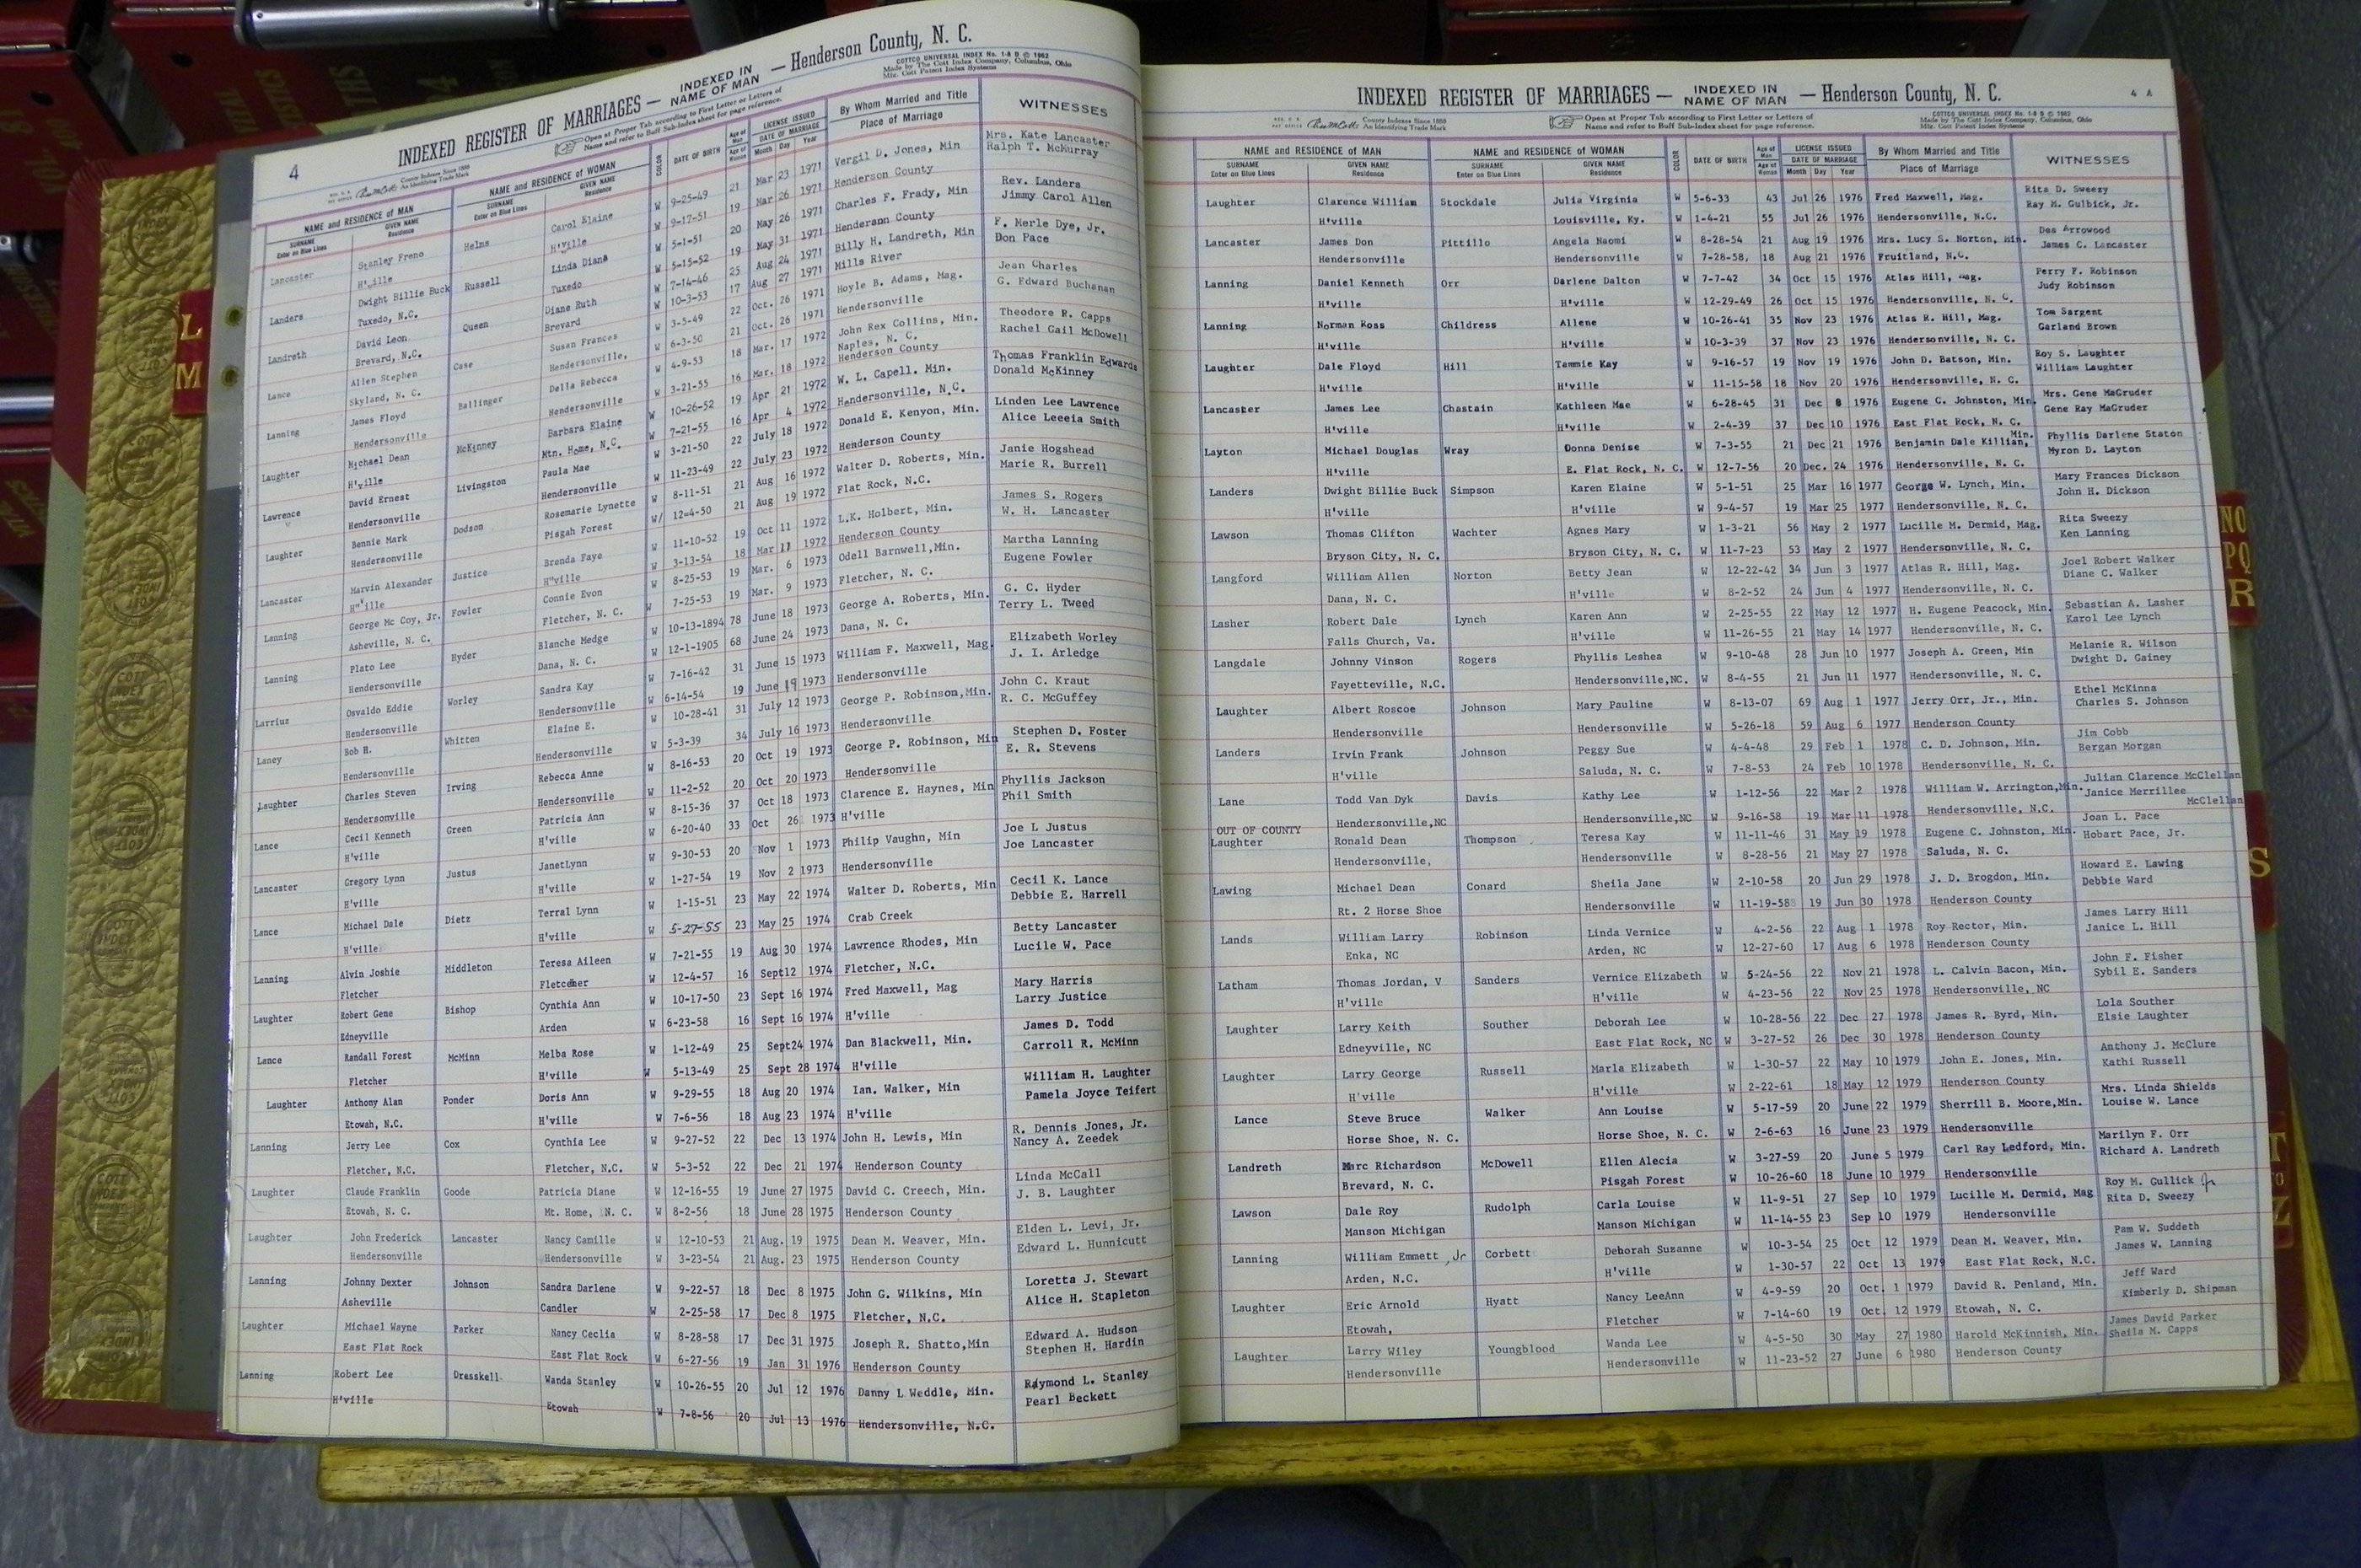 4
INDEXED REGISTER OF MARRIAGES — INDEXED IN NAME OF MAN — Henderson County, N. C.
COTTCO UNIVERSAL INDEX No. 1-8 B © 1962
Made by The Cott Index Company, Columbus, Ohio
Mfr. Cott Patent Index Systems
County Indexes Since 1888
An Identifying Trade Mark
Open at Proper Tab according to First Letter or Letters of
Name and refer to Buff Sub-Index sheet for page reference.
NAME and RESIDENCE OF MAN NAME and RESIDENCE OF WOMAN COLOR DATE OF BIRTH Age of Man LICENSE ISSUED By Whom Married and Title WITNESSES
SURNAME GIVEN NAME SURNAME GIVEN NAME Age of Woman DATE OF MARRIAGE Place of Marriage
Enter on Blue Lines Residence Enter on Blue Lines Residence Month Day Year
Lancaster Stanley Freno Helms Carol Elaine W 9-25-49 21 Mar 23 1971 Vergil D. Jones, Min Mrs. Kate Lancaster
H'ville H'ville W 9-17-51 19 Mar 26 1971 Henderson County Ralph T. McMurray
Landers Dwight Billie Buck Russell Linda Diana W 5-1-51 20 May 26 1971 Charles F. Frady, Min Rev. Landers
Tuxedo, N.C. Tuxedo W 5-15-52 19 May 31 1971 Henderson County Jimmy Carol Allen
Landreth David Leon Queen Diane Ruth W 7-14-46 25 Aug 24 1971 Billy H. Landreth, Min F. Merle Dye, Jr.
Brevard, N.C. Brevard W 10-3-53 17 Aug 27 1971 Mills River Don Pace
Lance Allen Stephen Case Susan Frances W 3-5-49 22 Oct. 26 1971 Hoyle B. Adams, Mag. Jean Charles
Skyland, N. C. Hendersonville, W 6-3-50 21 Oct. 26 1971 Hendersonville G. Edward Buchanan
Lanning James Floyd Ballinger Della Rebecca W 4-9-53 18 Mar. 17 1972 John Rex Collins, Min. Theodore R. Capps
Hendersonville Hendersonville W 3-21-55 16 Mar. 18 1972 Naples, N. C. Henderson County Rachel Gail McDowell
Laughter Michael Dean McKinney Barbara Elaine W 10-26-52 19 Apr 21 1972 W. L. Capell. Min. Thomas Franklin Edwards
H'ville Mtn. Home, N.C. W 7-21-55 16 Apr 4 1972 Hendersonville, N.C. Donald McKinney
Lawrence David Ernest Livingston Paula Mae W 3-21-50 22 July 18 1972 Donald E. Kenyon, Min. Linden Lee Lawrence
Hendersonville Hendersonville W 11-23-49 22 July 23 1972 Henderson County Alice Leeeia Smith
Laughter Bennie Mark Dodson Rosemarie Lynette W 8-11-51 21 Aug 16 1972 Walter D. Roberts, Min. Janie Hogshead
Hendersonville Pisgah Forest W/ 12-4-50 21 Aug 19 1972 Flat Rock, N.C. Marie R. Burrell
Lancaster Marvin Alexander Justice Brenda Faye W 11-10-52 19 Oct 11 1972 L.K. Holbert, Min. James S. Rogers
H"ville H"ville W 3-13-54 18 Mar 11 1972 Henderson County W. H. Lancaster
Lanning George Mc Coy, Jr. Fowler Connie Evon W 8-25-53 19 Mar. 6 1973 Odell Barnwell,Min. Martha Lanning
Asheville, N. C. Fletcher, N. C. W 7-25-53 19 Mar. 9 1973 Fletcher, N. C. Eugene Fowler
Lanning Plato Lee Hyder Blanche Medge W 10-13-1894 78 June 18 1973 George A. Roberts, Min. G. C. Hyder
Hendersonville Dana, N. C. W 12-1-1905 68 June 24 1973 Dana, N. C. Terry L. Tweed
Larriuz Osvaldo Eddie Worley Sandra Kay W 7-16-42 31 June 15 1973 William F. Maxwell, Mag. Elizabeth Worley
Hendersonville Hendersonville W 6-14-54 19 June 19 1973 Hendersonville J. I. Arledge
Laney Bob H. Whitten Elaine E. W 10-28-41 31 July 12 1973 George P. Robinson,Min. John C. Kraut
Hendersonville Hendersonville W 5-3-39 34 July 16 1973 Hendersonville R. C. McGuffey
Laughter Charles Steven Irving Rebecca Anne W 8-16-53 20 Oct 19 1973 George P. Robinson, Min Stephen D. Foster
Hendersonville Hendersonville W 11-2-52 20 Oct 20 1973 Hendersonville E. R. Stevens
Lance Cecil Kenneth Green Patricia Ann W 8-15-36 37 Oct 18 1973 Clarence E. Haynes, Min Phyllis Jackson
H'ville H'ville W 6-20-40 33 Oct 26 1973 H'ville Phil Smith
Lancaster Gregory Lynn Justus JanetLynn W 9-30-53 20 Nov 1 1973 Philip Vaughn, Min Joe L Justus
H'ville H'ville W 1-27-54 19 Nov 2 1973 Hendersonville Joe Lancaster
Lance Michael Dale Dietz Terral Lynn W 1-15-51 23 May 22 1974 Walter D. Roberts, Min Cecil K. Lance
H'ville H'ville W 5-27-55 23 May 25 1974 Crab Creek Debbie E. Harrell
Lanning Alvin Joshie Middleton Teresa Aileen W 7-21-55 19 Aug 30 1974 Lawrence Rhodes, Min Betty Lancaster
Fletcher Fletcher W 12-4-57 16 Sept12 1974 Fletcher, N.C. Lucile W. Pace
Laughter Robert Gene Bishop Cynthia Ann W 10-17-50 23 Sept 16 1974 Fred Maxwell, Mag Mary Harris
Edneyville Arden W 6-23-58 16 Sept 16 1974 H'ville Larry Justice
Lance Randall Forest McMinn Melba Rose W 1-12-49 25 Sept24 1974 Dan Blackwell, Min. James D. Todd
Fletcher H'ville W 5-13-49 25 Sept 28 1974 H'ville Carroll R. McMinn
Laughter Anthony Alan Ponder Doris Ann W 9-29-55 18 Aug 20 1974 Ian. Walker, Min William H. Laughter
Etowah, N.C. H'ville W 7-6-56 18 Aug 23 1974 H'ville Pamela Joyce Teifert
Lanning Jerry Lee Cox Cynthia Lee W 9-27-52 22 Dec 13 1974 John H. Lewis, Min R. Dennis Jones, Jr.
Fletcher, N.C. Fletcher, N.C. W 5-3-52 22 Dec 21 1974 Henderson County Nancy A. Zeedek
Laughter Claude Franklin Goode Patricia Diane W 12-16-55 19 June 27 1975 David C. Creech, Min. Linda McCall
Etowah, N. C. Mt. Home, N. C. W 8-2-56 18 June 28 1975 Henderson County J. B. Laughter
Laughter John Frederick Lancaster Nancy Camille W 12-10-53 21 Aug. 19 1975 Dean M. Weaver, Min. Elden L. Levi, Jr.
Hendersonville Hendersonville W 3-23-54 21 Aug. 23 1975 Henderson County Edward L. Hunnicutt
Lanning Johnny Dexter Johnson Sandra Darlene W 9-22-57 18 Dec 8 1975 John G. Wilkins, Min Loretta J. Stewart
Asheville Candler W 2-25-58 17 Dec 8 1975 Fletcher, N.C. Alice H. Stapleton
Laughter Michael Wayne Parker Nancy Ceclia W 8-28-58 17 Dec 31 1975 Joseph R. Shatto,Min Edward A. Hudson
East Flat Rock East Flat Rock W 6-27-56 19 Jan 31 1976 Henderson County Stephen H. Hardin
Lanning Robert Lee Dresskell Wanda Stanley W 10-26-55 20 Jul 12 1976 Danny L Weddle, Min. Raymond L. Stanley
H'ville Etowah W 7-8-56 20 Jul 13 1976 Hendersonville, N.C. Pearl Beckett
4 A
INDEXED REGISTER OF MARRIAGES — INDEXED IN NAME OF MAN — Henderson County, N. C.
County Indexes Since 1888
An Identifying Trade Mark
Open at Proper Tab according to First Letter or Letters of
Name and refer to Buff Sub-Index sheet for page reference.
COTTCO UNIVERSAL INDEX No. 1-8 B © 1962
Made by The Cott Index Company, Columbus, Ohio
Mfr. Cott Patent Index Systems
NAME and RESIDENCE OF MAN NAME and RESIDENCE OF WOMAN COLOR DATE OF BIRTH Age of Man LICENSE ISSUED By Whom Married and Title WITNESSES
SURNAME GIVEN NAME SURNAME GIVEN NAME Age of Woman DATE OF MARRIAGE Place of Marriage
Enter on Blue Lines Residence Enter on Blue Lines Residence Month Day Year
Laughter Clarence William Stockdale Julia Virginia W 5-6-33 43 Jul 26 1976 Fred Maxwell, Mag. Rita D. Sweezy
H'ville Louisville, Ky. W 1-4-21 55 Jul 26 1976 Hendersonville, N.C. Ray M. Gulbick, Jr.
Lancaster James Don Pittillo Angela Naomi W 8-28-54 21 Aug 19 1976 Mrs. Lucy S. Norton, Min. Dea Arrowood
Hendersonville Hendersonville W 7-28-58, 18 Aug 21 1976 Fruitland, N.C. James C. Lancaster
Lanning Daniel Kenneth Orr Darlene Dalton W 7-7-42 34 Oct 15 1976 Atlas Hill, Mag. Perry F. Robinson
H'ville H'ville W 12-29-49 26 Oct 15 1976 Hendersonville, N. C. Judy Robinson
Lanning Norman Ross Childress Allene W 10-26-41 35 Nov 23 1976 Atlas R. Hill, Mag. Tom Sargent
H'ville H'ville W 10-3-39 37 Nov 23 1976 Hendersonville, N. C. Garland Brown
Laughter Dale Floyd Hill Tammie Kay W 9-16-57 19 Nov 19 1976 John D. Batson, Min. Roy S. Laughter
H'ville H'ville W 11-15-58 18 Nov 20 1976 Hendersonville, N. C. William Laughter
Lancaster James Lee Chastain Kathleen Mae W 6-28-45 31 Dec 8 1976 Eugene C. Johnston, Min. Mrs. Gene MaGruder
H'ville H'ville W 2-4-39 37 Dec 10 1976 East Flat Rock, N. C. Gene Ray MaGruder
Layton Michael Douglas Wray Donna Denise W 7-3-55 21 Dec 21 1976 Benjamin Dale Killian, Min. Phyllis Darlene Staton
H'ville E. Flat Rock, N. C. W 12-7-56 20 Dec. 24 1976 Hendersonville, N. C. Myron D. Layton
Landers Dwight Billie Buck Simpson Karen Elaine W 5-1-51 25 Mar 16 1977 George W. Lynch, Min. Mary Frances Dickson
H'ville H'ville W 9-4-57 19 Mar 25 1977 Hendersonville, N. C. John H. Dickson
Lawson Thomas Clifton Wachter Agnes Mary W 1-3-21 56 May 2 1977 Lucille M. Dermid, Mag. Rita Sweezy
Bryson City, N. C. Bryson City, N. C. W 11-7-23 53 May 2 1977 Hendersonville, N. C. Ken Lanning
Langford William Allen Norton Betty Jean W 12-22-42 34 Jun 3 1977 Atlas R. Hill, Mag. Joel Robert Walker
Dana, N. C. H'ville W 8-2-52 24 Jun 4 1977 Hendersonville, N. C. Diane C. Walker
Lasher Robert Dale Lynch Karen Ann W 2-25-55 22 May 12 1977 H. Eugene Peacock, Min. Sebastian A. Lasher
Falls Church, Va. H'ville W 11-26-55 21 May 14 1977 Hendersonville, N. C. Karol Lee Lynch
Langdale Johnny Vinson Rogers Phyllis Leshea W 9-10-48 28 Jun 10 1977 Joseph A. Green, Min Melanie R. Wilson
Fayetteville, N.C. Hendersonville,NC. W 8-4-55 21 Jun 11 1977 Hendersonville, N. C. Dwight D. Gainey
Laughter Albert Roscoe Johnson Mary Pauline W 8-13-07 69 Aug 1 1977 Jerry Orr, Jr., Min. Ethel McKinna
Hendersonville Hendersonville W 5-26-18 59 Aug 6 1977 Henderson County Charles S. Johnson
Landers Irvin Frank Johnson Peggy Sue W 4-4-48 29 Feb 1 1978 C. D. Johnson, Min. Jim Cobb
H'ville Saluda, N. C. W 7-8-53 24 Feb 10 1978 Hendersonville, N. C. Bergan Morgan
Lane Todd Van Dyk Davis Kathy Lee W 1-12-56 22 Mar 2 1978 William W. Arrington,Min. Julian Clarence McClellan
Hendersonville,NC Hendersonville,NC W 9-16-58 19 Mar 11 1978 Hendersonville, N.C. Janice Merrillee McClellan
OUT OF COUNTY
Laughter Ronald Dean Thompson Teresa Kay W 11-11-46 31 May 19 1978 Eugene C. Johnston, Min. Joan L. Pace
Hendersonville, Hendersonville W 8-28-56 21 May 27 1978 Saluda, N. C. Hobart Pace, Jr.
Lawing Michael Dean Conard Sheila Jane W 2-10-58 20 Jun 29 1978 J. D. Brogdon, Min. Howard E. Lawing
Rt. 2 Horse Shoe Hendersonville W 11-19-58 19 Jun 30 1978 Henderson County Debbie Ward
Lands William Larry Robinson Linda Vernice W 4-2-56 22 Aug 1 1978 Roy Rector, Min. James Larry Hill
Enka, NC Arden, NC W 12-27-60 17 Aug 6 1978 Henderson County Janice L. Hill
Latham Thomas Jordan, V Sanders Vernice Elizabeth W 5-24-56 22 Nov 21 1978 L. Calvin Bacon, Min. John F. Fisher
H'ville H'ville W 4-23-56 22 Nov 25 1978 Hendersonville, NC Sybil E. Sanders
Laughter Larry Keith Souther Deborah Lee W 10-28-56 22 Dec 27 1978 James R. Byrd, Min. Lola Souther
Edneyville, NC East Flat Rock, NC W 3-27-52 26 Dec 30 1978 Henderson County Elsie Laughter
Laughter Larry George Russell Marla Elizabeth W 1-30-57 22 May 10 1979 John E. Jones, Min. Anthony J. McClure
H'ville H'ville W 2-22-61 18 May 12 1979 Henderson County Kathi Russell
Lance Steve Bruce Walker Ann Louise W 5-17-59 20 June 22 1979 Sherrill B. Moore,Min. Mrs. Linda Shields
Horse Shoe, N. C. Horse Shoe, N. C. W 2-6-63 16 June 23 1979 Hendersonville Louise W. Lance
Landreth Marc Richardson McDowell Ellen Alecia W 3-27-59 20 June 5 1979 Carl Ray Ledford, Min. Marilyn F. Orr
Brevard, N. C. Pisgah Forest W 10-26-60 18 June 10 1979 Hendersonville Richard A. Landreth
Lawson Dale Roy Rudolph Carla Louise W 11-9-51 27 Sep 10 1979 Lucille M. Dermid, Mag Roy M. Gullick Jr
Manson Michigan Manson Michigan W 11-14-55 23 Sep 10 1979 Hendersonville Rita D. Sweezy
Lanning William Emmett ,Jr Corbett Deborah Suzanne W 10-3-54 25 Oct 12 1979 Dean M. Weaver, Min. Pam W. Suddeth
Arden, N.C. H'ville W 1-30-57 22 Oct 13 1979 East Flat Rock, N.C. James W. Lanning
Laughter Eric Arnold Hyatt Nancy LeeAnn W 4-9-59 20 Oct. 1 1979 David R. Penland, Min. Jeff Ward
Etowah, Fletcher W 7-14-60 19 Oct. 12 1979 Etowah, N. C. Kimberly D. Shipman
Laughter Larry Wiley Youngblood Wanda Lee W 4-5-50 30 May 27 1980 Harold McKinnish, Min. James David Parker
Hendersonville Hendersonville W 11-23-52 27 June 6 1980 Henderson County Sheila M. Capps
L
M
NO
PQ
R
S
T
TO
Z